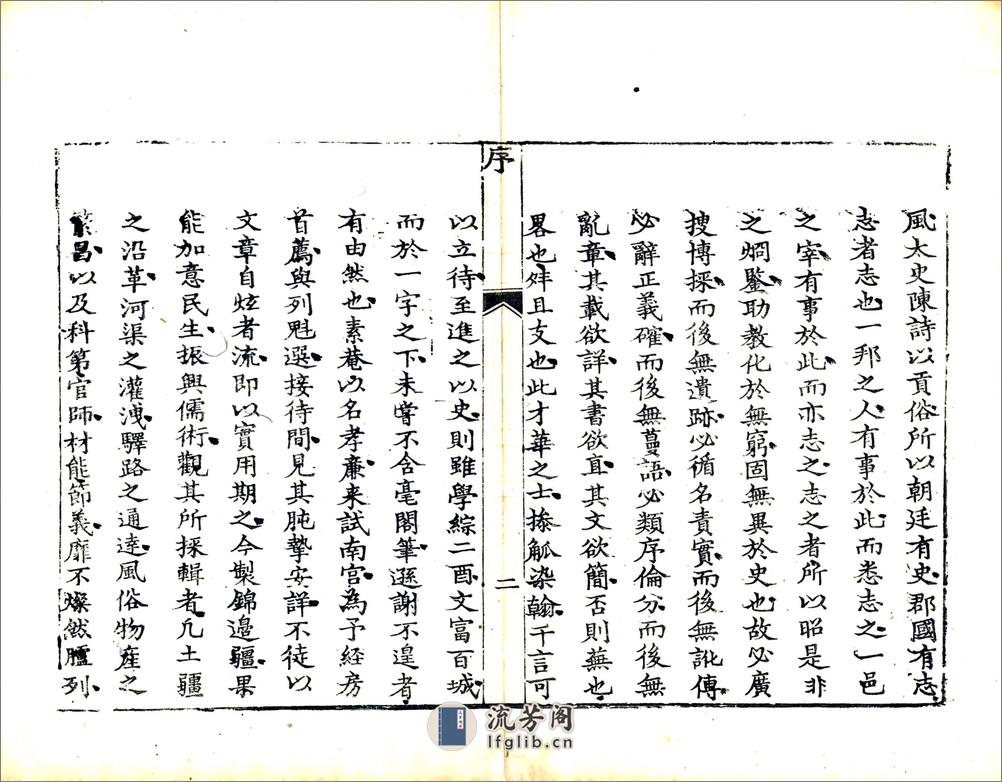 風太史陳詩以貢俗所以朝廷有史郡國有志
志者志也一邦之人有事於此而悉志之一邑
之宰有事於此而亦志之志之者所以昭是非
之烱鑒助教化於無窮固無異於史也故必廣
搜博採而後無遺跡必循名責實而後無訛傳
必辭正義確而後無蔓語必類序倫分而後無
亂章其載欲詳其書欲直其文欲簡否則蕪也
畧也舛且支也此才華之士捺觚染翰千言可
序
二
以立待至進之以史則雖學綜二酉文富百城
而於一字之下未嘗不含毫閣筆遜謝不遑者
有由然也素菴以名孝廉来試南宫為予経房
首薦與列魁選接待間見其肫摯安詳不徒以
文章自炫者流即以實用期之今製錦邉疆果
能加意民生振興儒術觀其所採輯者凢土疆
之沿革河渠之灌洩驛路之通逹風俗物產之
繁昌以及科第官師材能節義靡不燦然臚列
流芳阁
lfglib.cn